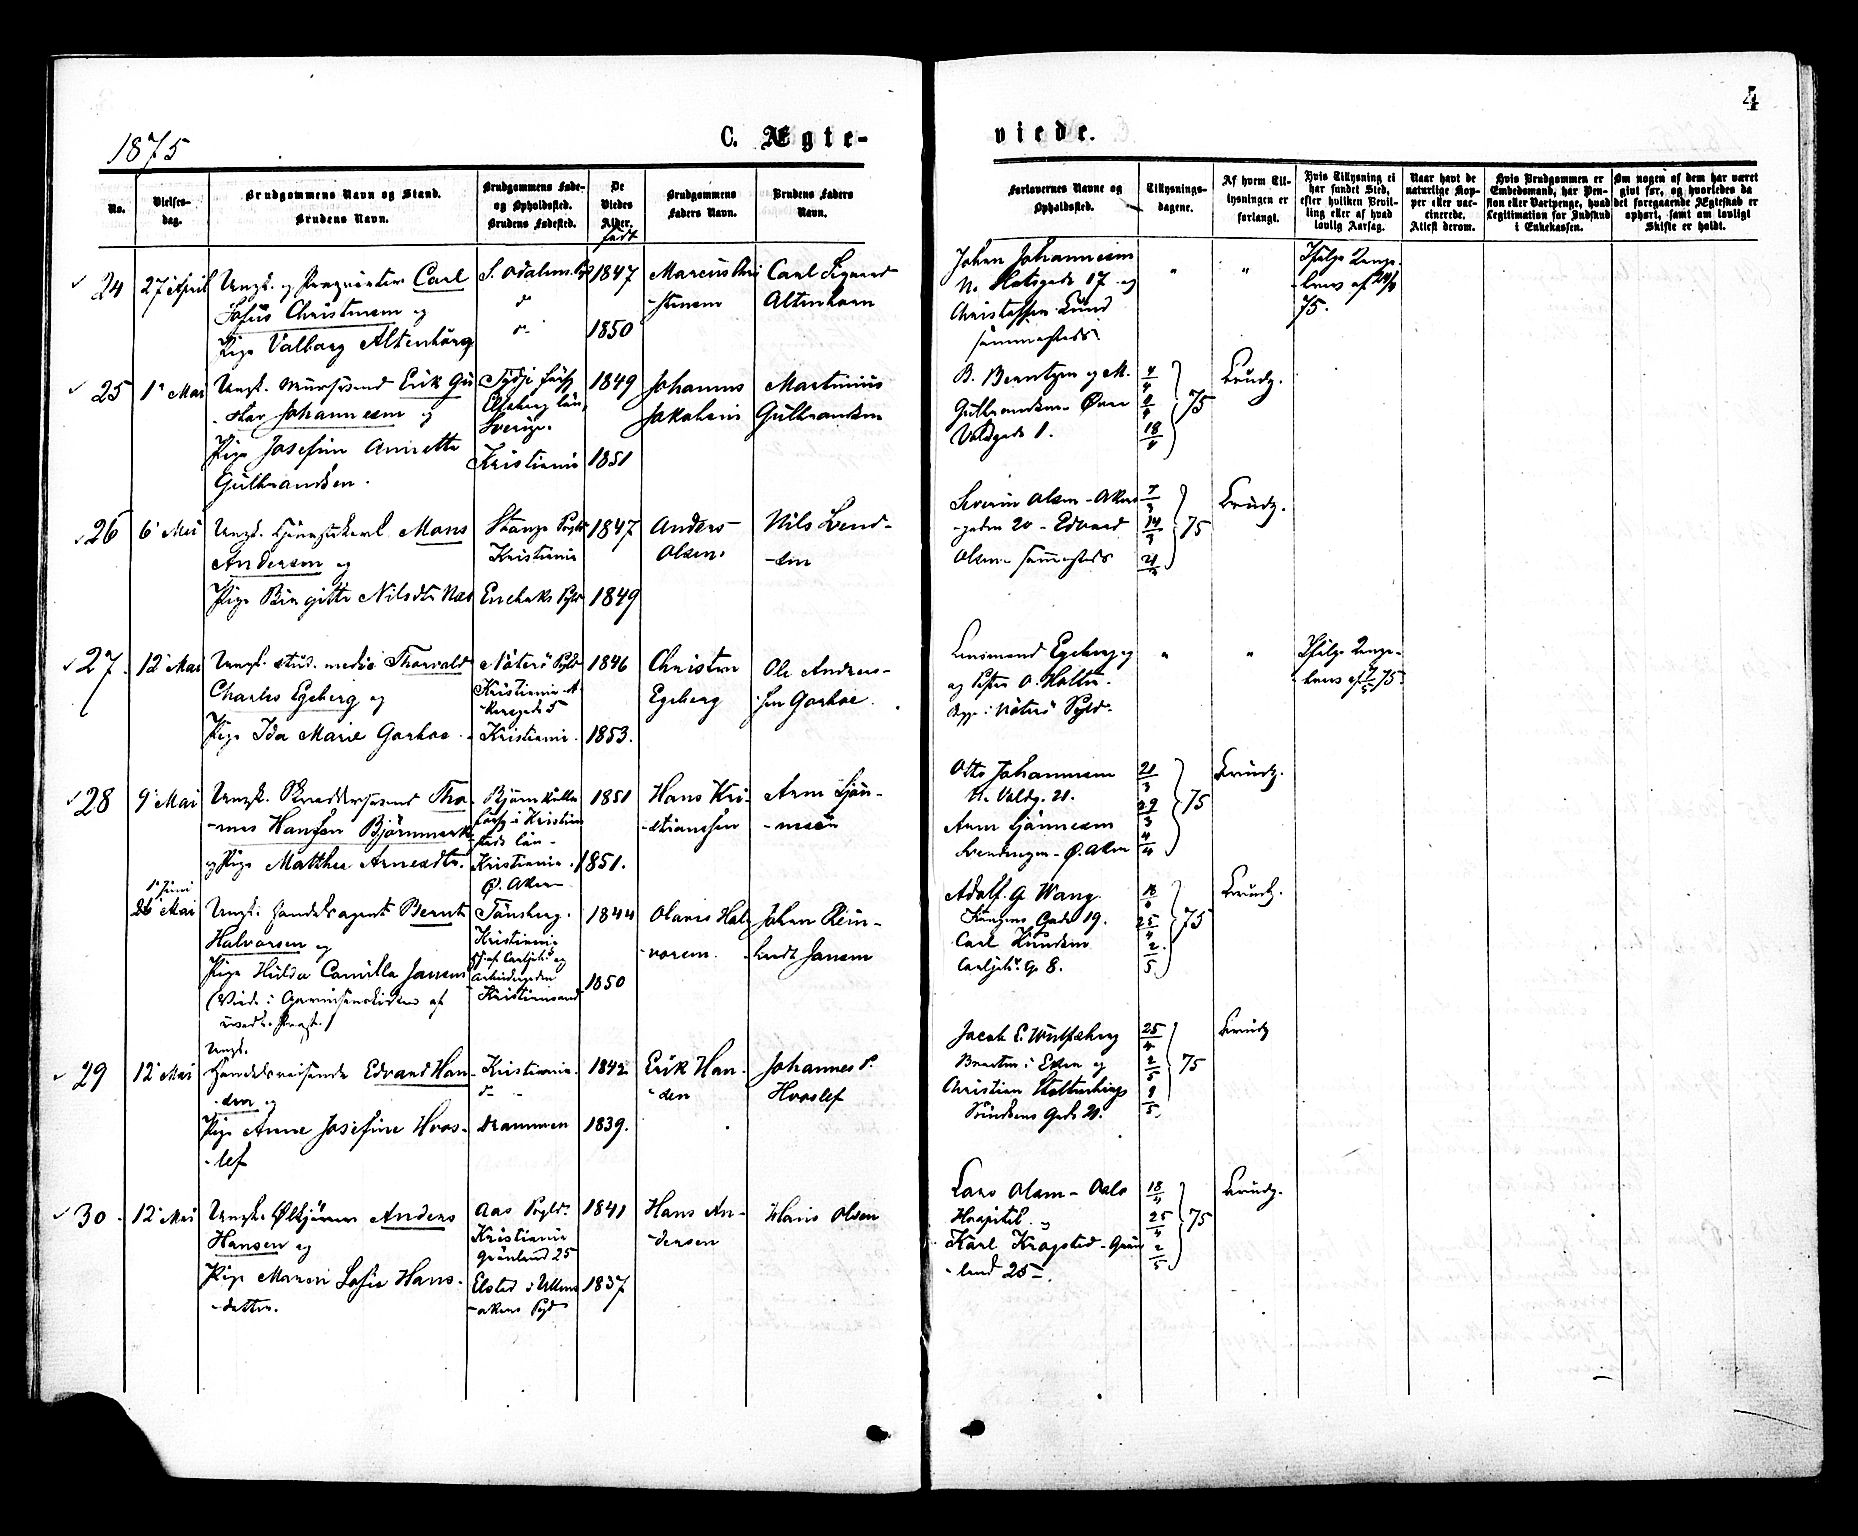 1875
C. Ægte-
viede.
4
No.
Vielses-
dag.
Brudgommens Navn og Stand.
Brudens Navn.
Brudgommens Føde-
og Opholdssted.
Brudens Fødested.
De
Viedes
Alder.
født
Brudgommens
Faders Navn.
Brudens Faders
Navn.
Forlovernes Navne og
Opholdssted.
Tillysnings-
dagene.
Af hvem Til-
lysningen er
forlangt.
Hvis Tillysning ei
har fundet Sted,
efter hvilken Bevil-
ling eller af hvad
lovlig Aarsag.
Naar havt de
naturlige Kop-
per eller vac-
cinerede.
Attest derom.
Hvis Brudgommen er
Embedsmand, har Pen-
sion eller Vartpenge, hvad
Legitimation for Indskud
i Enkekassen.
Om nogen af dem har været
gift før, og hvorledes da
det foregaaende Ægteskab er
ophørt, samt om lovligt
Skifte er holdt.
24
27 April
Ungk. og Carl
Sofus Christensen og
Pige Valborg Altenborg
S. Odalens
1847
1850
Marcus Chri
-stensen
Carl Sigvard
Altenborn
Johan Johannesen
N. Slotsgade 17 og
Christoffer Lund
sammesteds
75.
25
1 Mai
Ungk. Murersvend Erik Gu
-stav Johannesen og
Pige Josefine Annette
Gulbrandsen.
Elfsborg län,
Sverige.
Kristiania
1849
1851
Johannes
Jakobsen
Martinius
Gulbrandsen
B. Berntzen og M.
Gulbrandsen - Øvre
Voldgade 1.
4/4
18/4
75
Brudg.
26
6 Mai
Ungk. Mons
Andersen og
Pige Birgitte Nilsdtr Næs
Stange Prgld
Kristiania
Enebaks Pgld
1847
1849
Anders
Olsen.
Nils Svend-
-sen
Severin Olsen - Akers
-gaden 20 - Edvard
Olsen - sammesteds
7/3
14/3
21/3
75
Brudg.
27.
12 Mai
Ungk. stud. medic Thorvald
Charles Egeberg og
Pige Ida Marie Garboe
Nøterø Pgld
Kristiania A-
kersgade 5
Kristiania
1846
1853.
Christen
Egeberg
Ole Andreas-
sen Garboe.
Lensmand Egeberg og
og O. Holter.
Nøterø Pgld.
28
9 Mai
Ungk. Skræddersvend Tho-
mas Hansen Björnmark
og Pige Mathea Arnesdtr.
i Kristian
stads län
Kristiania
Ø. Aker
1851
1851.
Hans Kri-
-stianssen
Arne Sjön-
-nesen
Otto Johannesen
N. Voldg. 21.
Arne Sjönnesen
- Ø. Aker
21/3
29/3
4/4
75
Brudg.
1 Juni
26 Mai
Ungk. Handelsagent Bernt
Halvorsen og
Pige Hulda Camilla Jansen
(Viede i Garnisonskirken af
Tönsberg.
Kristiania
Kristianssand
1844
1850
Olaves Hal-
vorsen.
Johan Rein-
hardt Jansen
Adolf G Wang.
Kongens Gade 19.
Carl Knudsen
25/4
2/5
75
Brudg.
29
12 Mai
Ungk.
Handelsreisende Edvard Han-
-den og
Pige Anne Josefine Hvos-
-lef
Kristiania
Drammen
1842
1839.
Erik Han-
-den
Johannes P.
Hvoslef
Jacob E.
og
Christian Stoltenberg
Gade 21.
25/4
2/5
9/5
75
Brudg
30
12 Mai
Ungk. Ølkjører Anders
Hansen og
Pige Maren Sofie Hans-
-datter.
Aas Prgld.
Kristiania
Grönland 25
Elsted i Ullens
-akers Pgd
1841
1837
Hans An-
dersen
Hans Olsen
Lars Olsen - Oslo
Hospital.
Karl Krogsted - Grön
-land 25
18/4
25/4
2/5
75
Brudg.